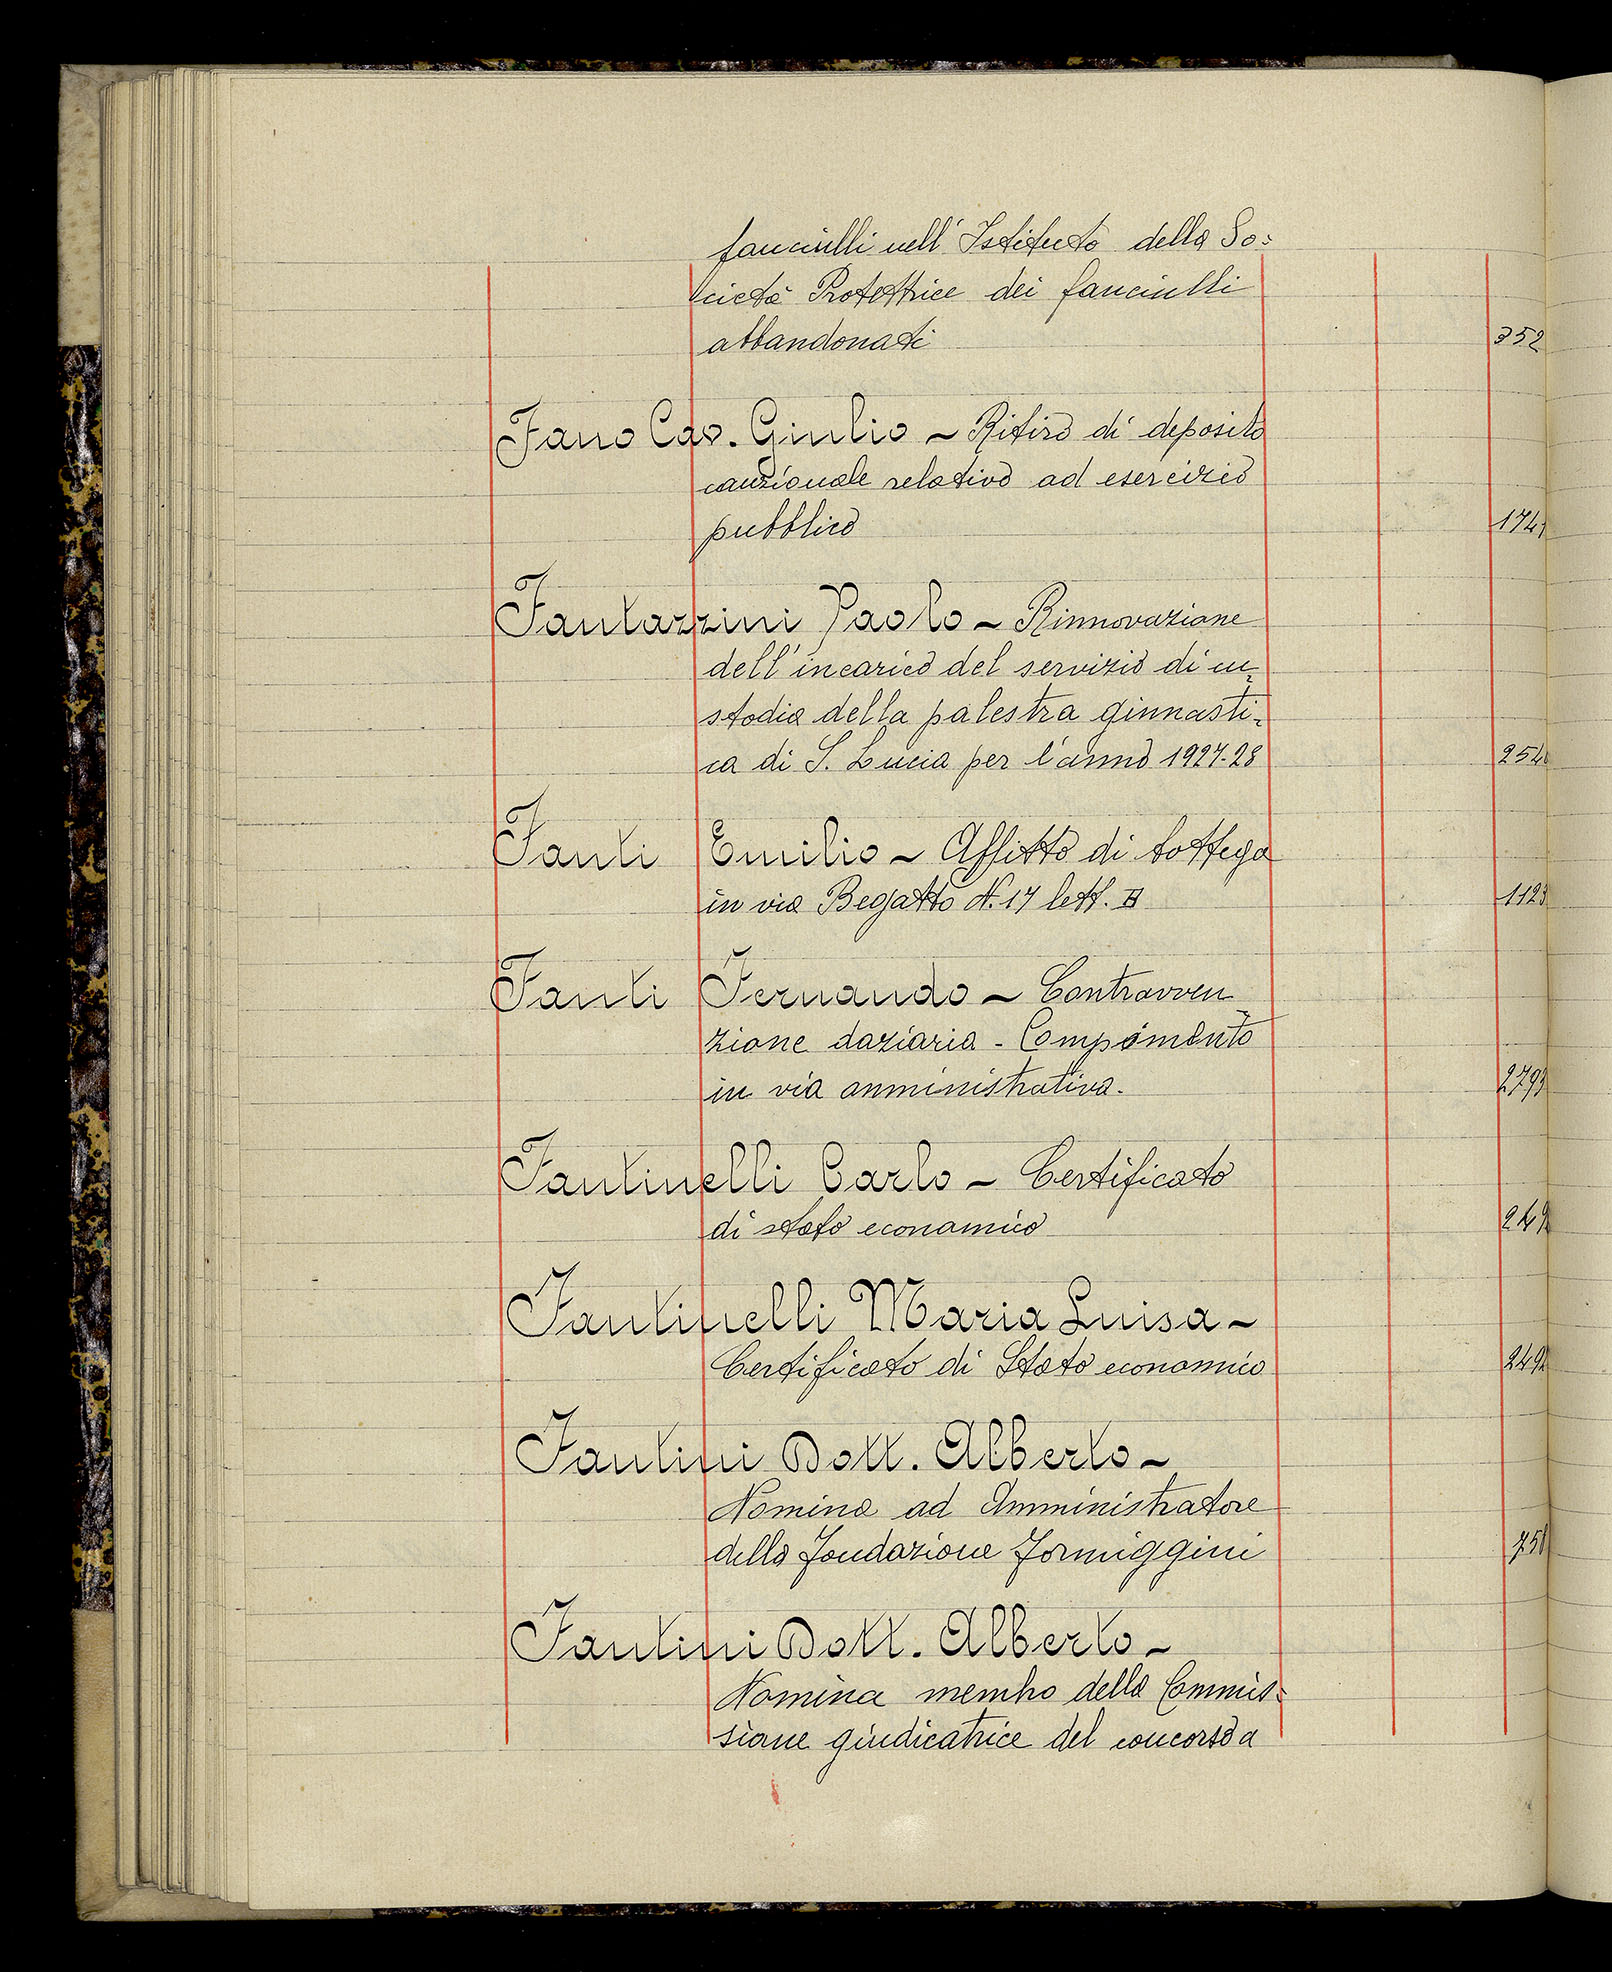 fanciulli nell'Istituto della So=
cietà Protettrice dei fanciulli
abbandonati 352
Fano Cav. Giulio ~ Ritiro di deposito
cauzionale relativo ad esercizio
pubblico 174
Fantazzini Paolo ~ Rinnovazione
dell'incarico del servizio di cu=
stodia della palestra ginnasti=
ca di S. Lucia per l'anno 1927-28 254
Fanti Emilio ~ Affitto di bottega
in via Begatto N. 17 lett.
1123
Fanti Fernando ~ Contravven=
zione daziaria - Componimento
in via amministrativa. 2793
Fantinelli Carlo ~ Certificato
di stato economico 249
Fantinelli Maria Luisa ~
Certificato di Stato economico 249
Fantini Dott. Alberto ~
Nomina ad Amministratore
della Fondazione Formiggini 75
Fantini Dott. Alberto ~
Nomina membro della Commis=
sione giudicatrice del concorso a